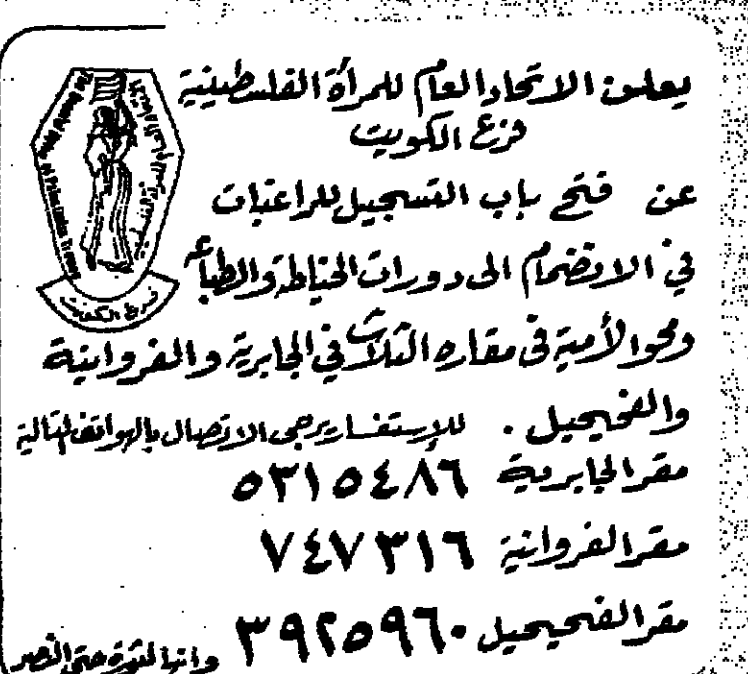 يعلن الاتحاد العام للمرأة الفلسطينية
فرع الكويت
عن فتح باب التسجيل للراغبات
في الانضمام الى دورات الخياطة والطباعه
ومحو الأمية في مقاره الثلاث في الجابرية والفروانية
والفحيحيل . للإستفسار يرجى الاتصال بالهواتف التالية
مقر الجابرية ٥٣١٥٤٨٦
مقر الفروانية ٧٤٧٣١٦
مقر الفحيحيل ٣٩٢٥٩٦٠ وانها لثورة حتى النصر
فرع الكويت